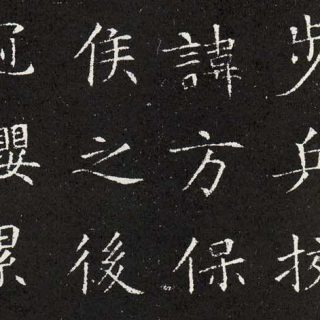 步兵校
諱方保
侯之後
冠纓累